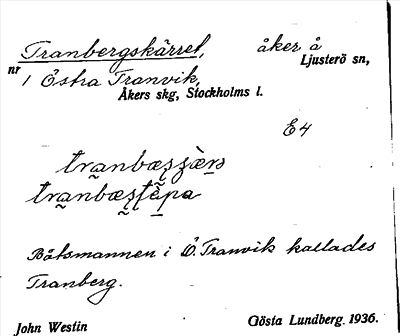 Tranbergskärret, åker å
Ljusterö sn,
nr 1 Östra Tranvik,
Åkers skg, Stockholms l.
E4
Båtsmannen i Ö. Tranvik kallades
Tranberg.
John Westin Gösta Lundberg. 1936.